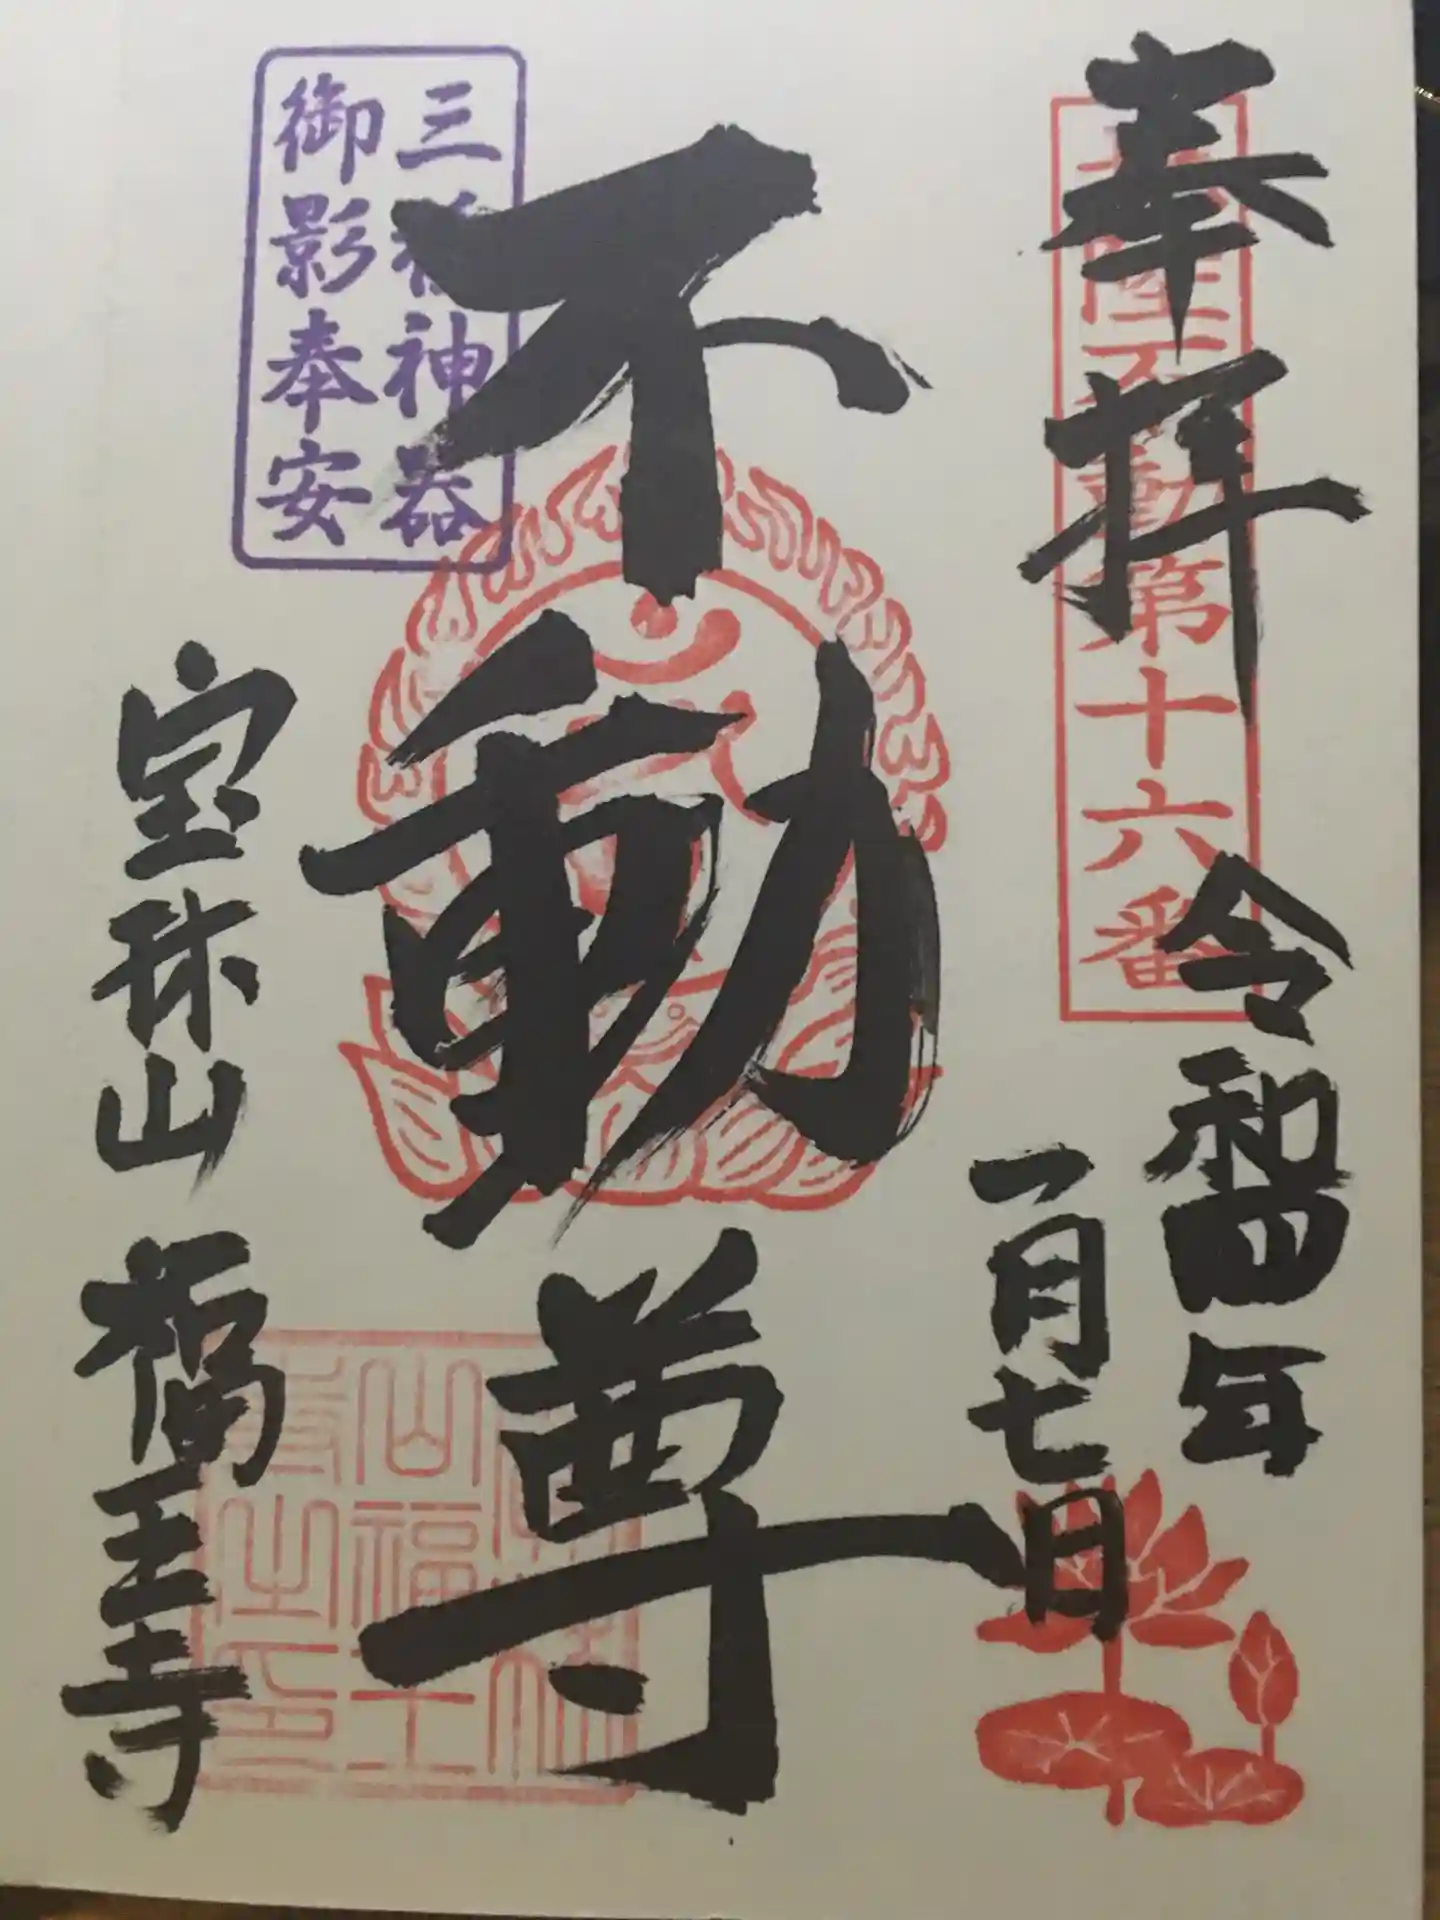 奉拝
不動第十六番
令和四年
一月七日
不動尊
三種神器
御影奉安
宝珠山 福王寺